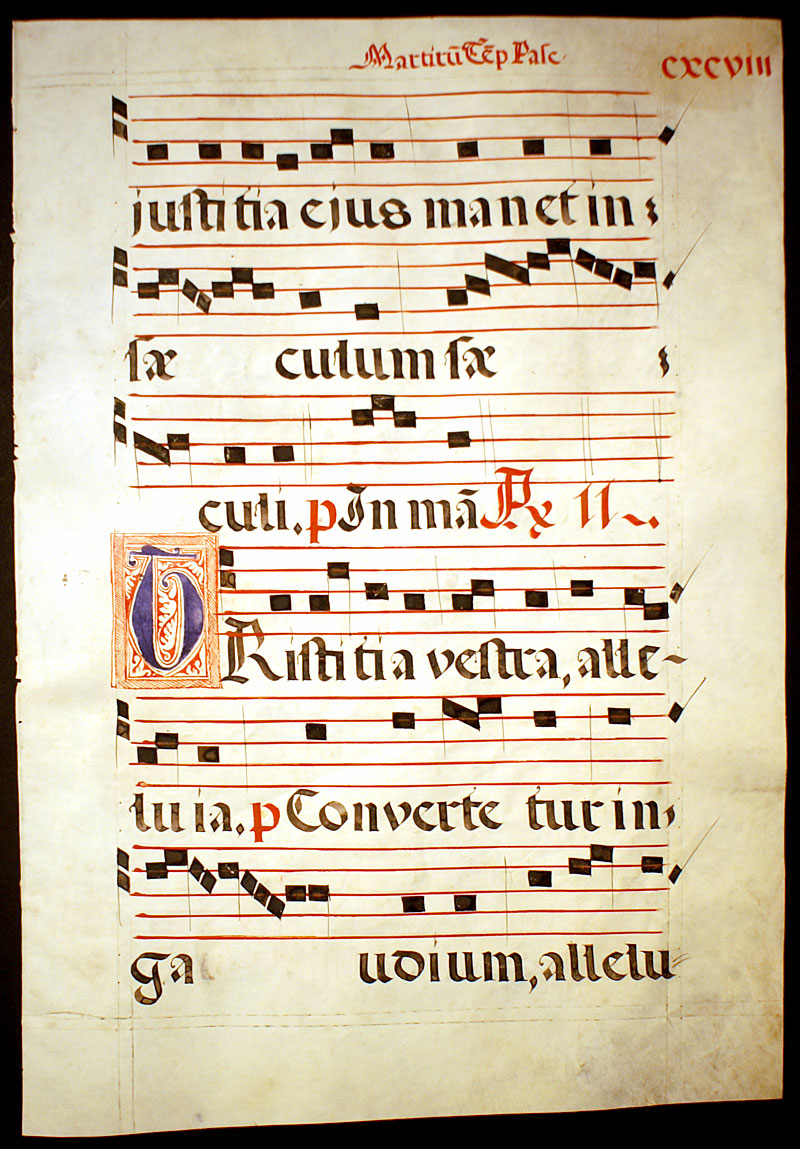 Martirũ Tẽp Pasc
cxcviii
justitia ejus manet in
sæ culum sæ
culi. p In mã Px 11
TRistitia vestra, alle-
luia. p Converte tur in
ga udium, allelu